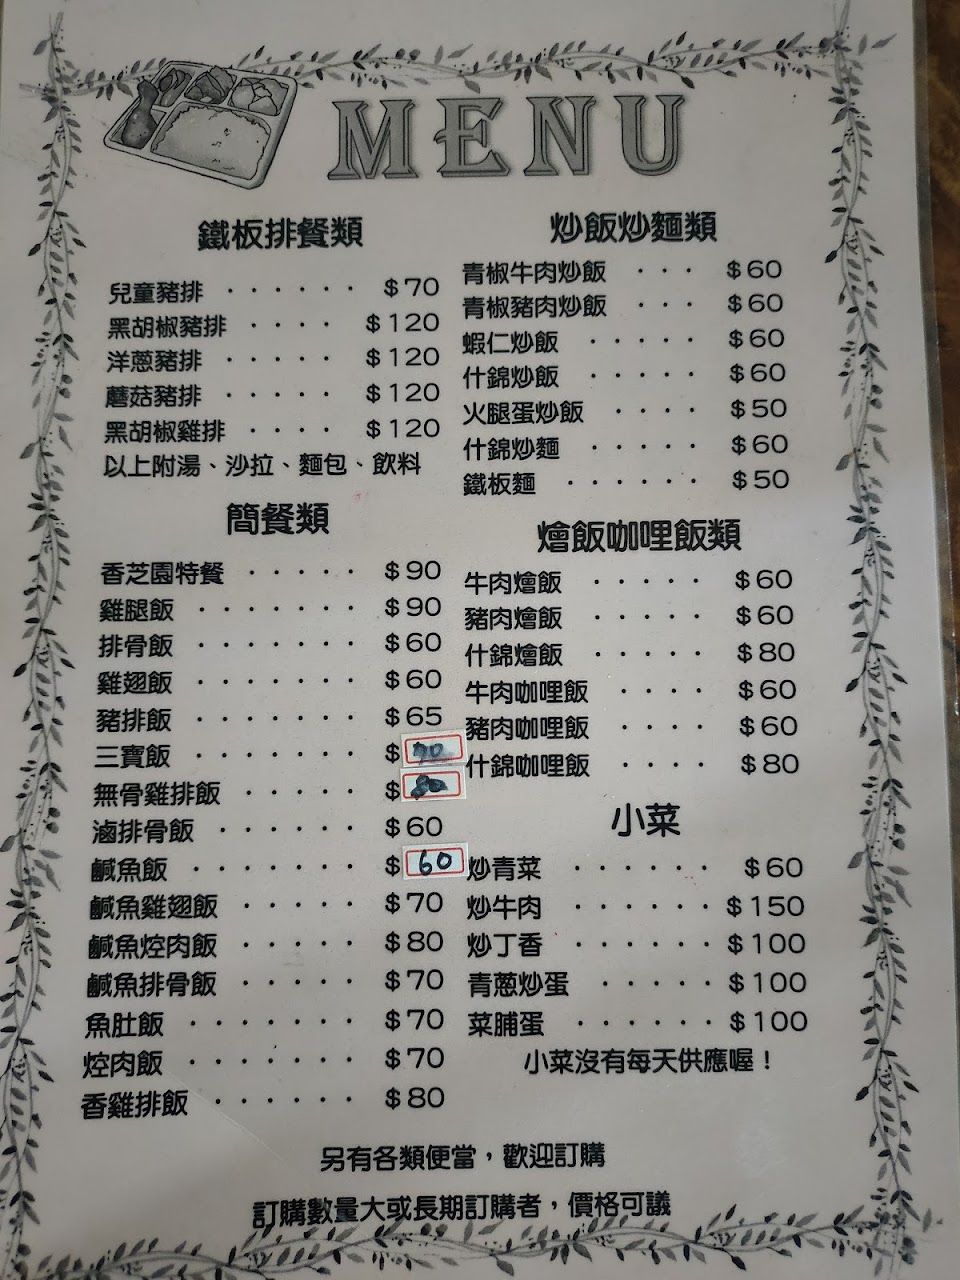 MENU
鐵板排餐類
兒童豬排 · · · · · · $70
黑胡椒豬排 · · · · $120
洋蔥豬排 · · · · · $120
蘑菇豬排 · · · · · $120
黑胡椒雞排 · · · · $120
以上附湯、沙拉、麵包、飲料
簡餐類
香芝園特餐 · · · · · $90
雞腿飯 · · · · · · · $90
排骨飯 · · · · · · · $60
雞翅飯 · · · · · · · $60
豬排飯 · · · · · · · $65
三寶飯 · · · · · · · $
無骨雞排飯 · · · · · $
滷排骨飯 · · · · · · $60
鹹魚飯 · · · · · · · $60
鹹魚雞翅飯 · · · · · $70
鹹魚焢肉飯 · · · · · $80
鹹魚排骨飯 · · · · · $70
魚肚飯 · · · · · · · $70
焢肉飯 · · · · · · · $70
香雞排飯 · · · · · · $80
炒飯炒麵類
青椒牛肉炒飯 · · · $60
青椒豬肉炒飯 · · · $60
蝦仁炒飯 · · · · · $60
什錦炒飯 · · · · · $60
火腿蛋炒飯 · · · · $50
什錦炒麵 · · · · · $60
鐵板麵 · · · · · · $50
燴飯咖哩飯類
牛肉燴飯 · · · · · $60
豬肉燴飯 · · · · · $60
什錦燴飯 · · · · · $80
牛肉咖哩飯 · · · · $60
豬肉咖哩飯 · · · · $60
什錦咖哩飯 · · · · $80
小菜
炒青菜 · · · · · · $60
炒牛肉 · · · · · · $150
炒丁香 · · · · · · $100
青蔥炒蛋 · · · · · $100
菜脯蛋 · · · · · · $100
小菜沒有每天供應喔！
另有各類便當，歡迎訂購
訂購數量大或長期訂購者，價格可議